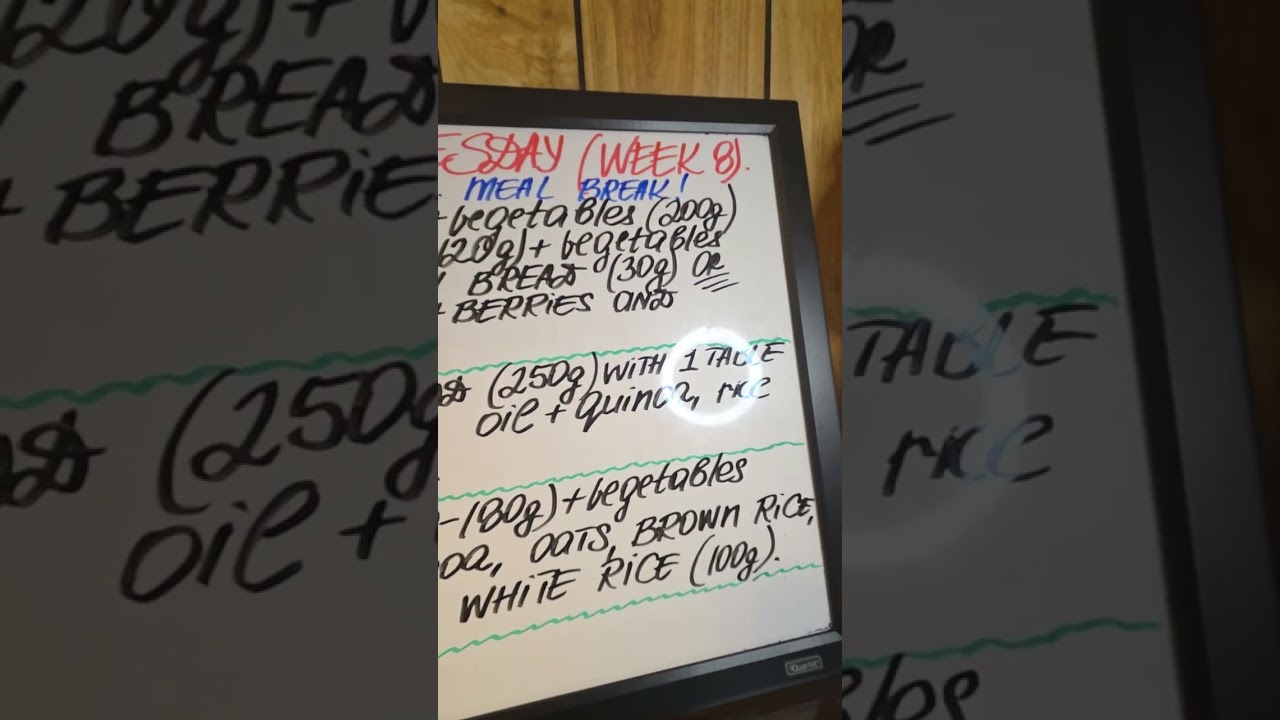 ESDAY (WEEK 8).
MEAL BREAK!
+ vegetables (200g)
120g) + vegetables
BREAD (30g) OR
+ BERRIES AND
(250g) WITH 1 TABLE
OIL + QUINOA, RICE
-180g) + vegetables
OA, OATS, BROWN RICE,
WHITE RICE (100g).
Quartet